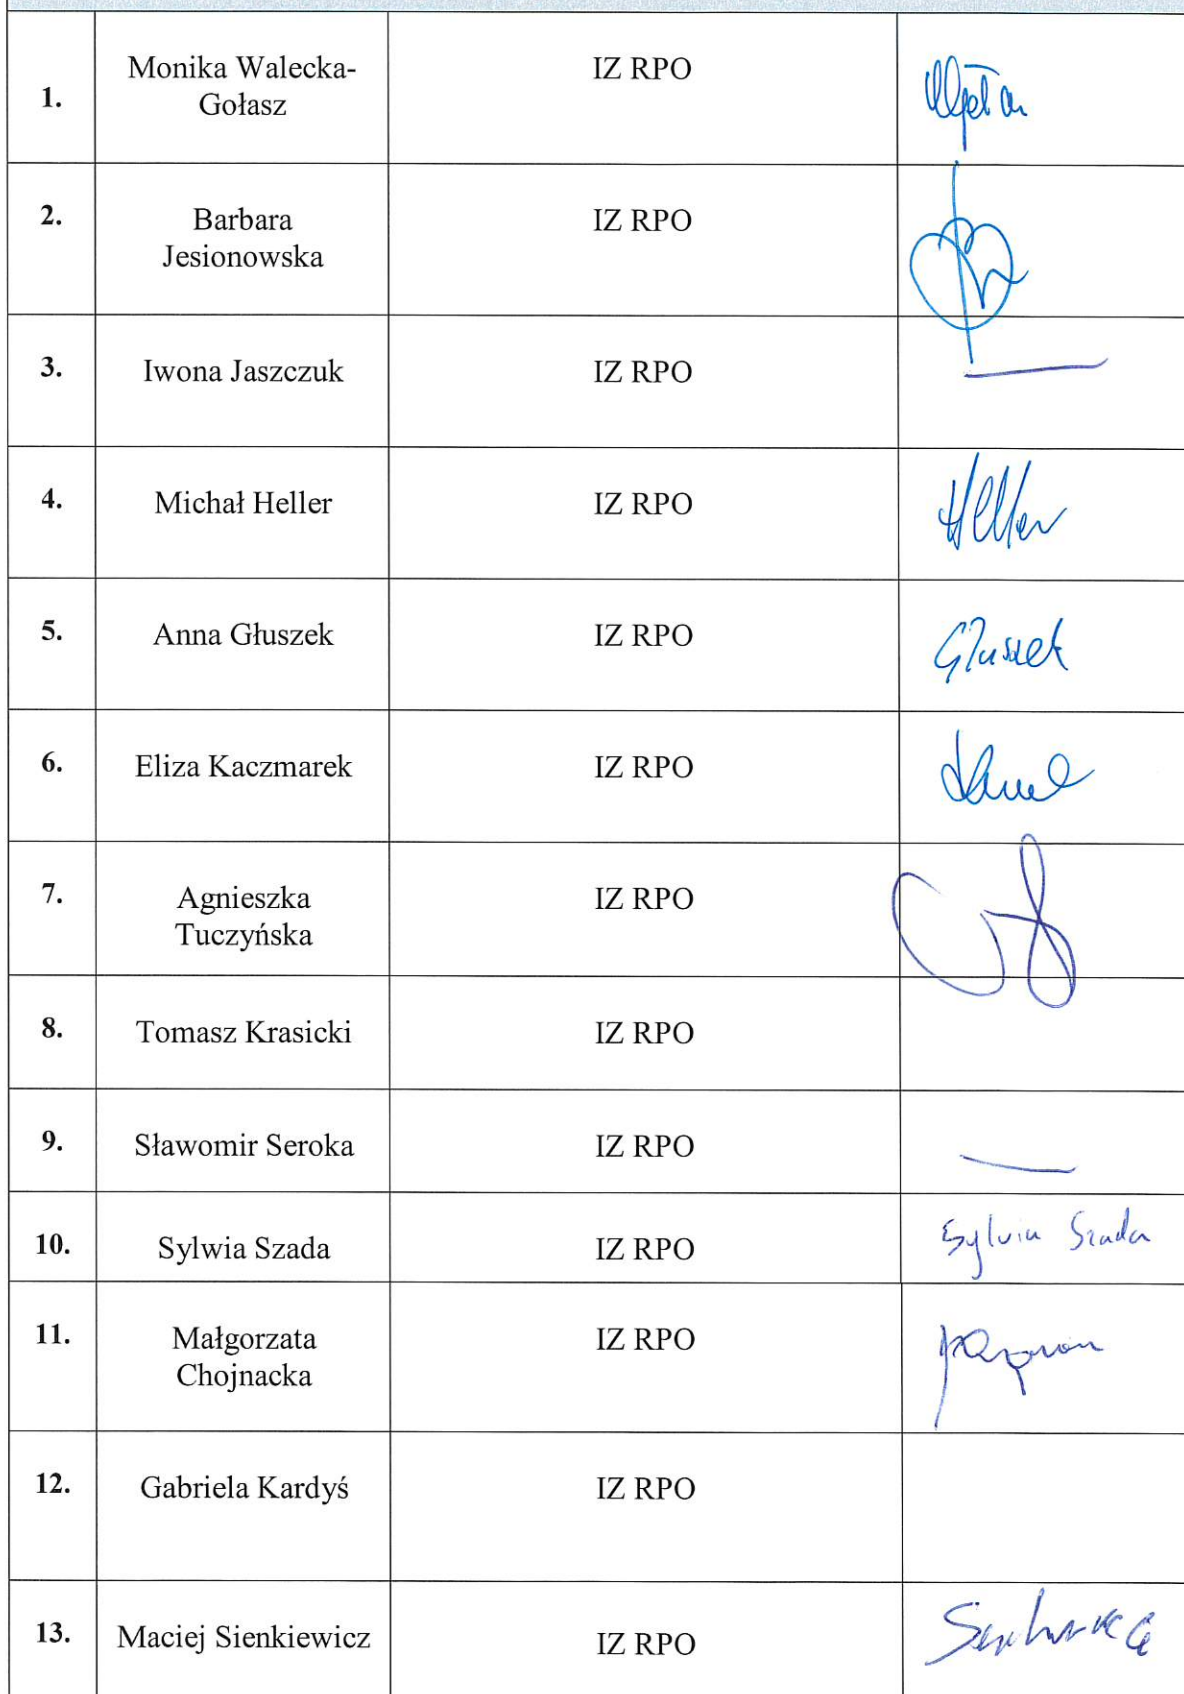 1.
Monika Walecka-
Gołasz
IZ RPO
2.
Barbara
Jesionowska
IZ RPO
3.
Iwona Jaszczuk
IZ RPO
4.
Michał Heller
IZ RPO
Heller
5.
Anna Głuszek
IZ RPO
Głuszek
6.
Eliza Kaczmarek
IZ RPO
7.
Agnieszka
Tuczyńska
IZ RPO
8.
Tomasz Krasicki
IZ RPO
9.
Sławomir Seroka
IZ RPO
10.
Sylwia Szada
IZ RPO
Sylwia Szada
11.
Małgorzata
Chojnacka
IZ RPO
12.
Gabriela Kardyś
IZ RPO
13.
Maciej Sienkiewicz
IZ RPO